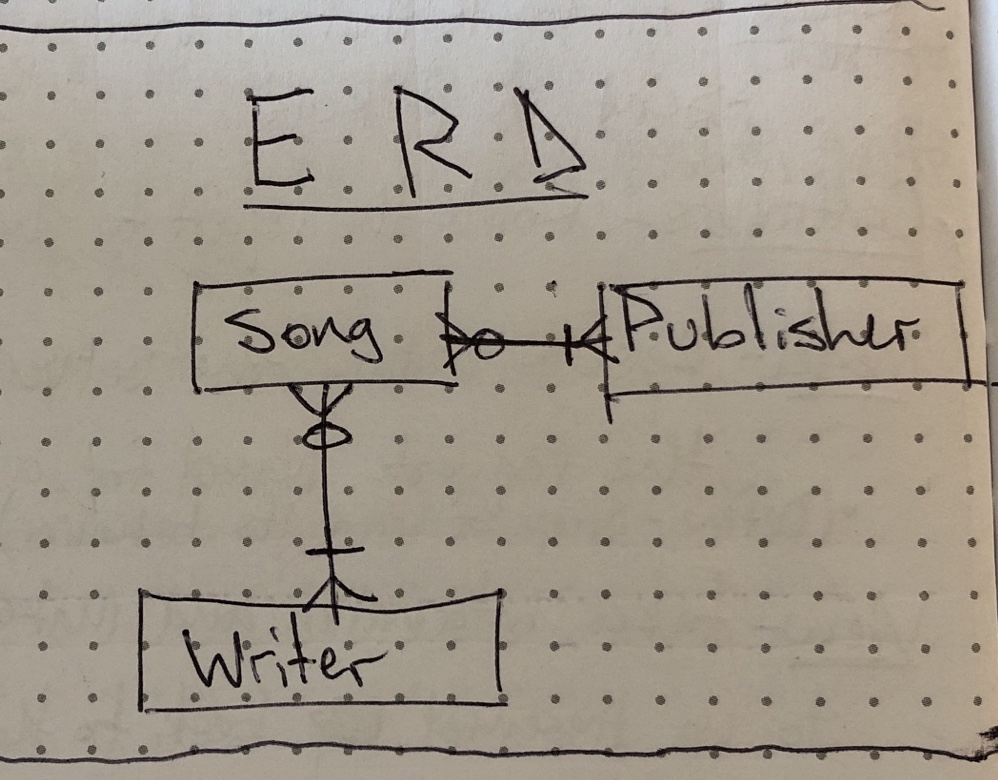 ERD
Song Publisher
Writer